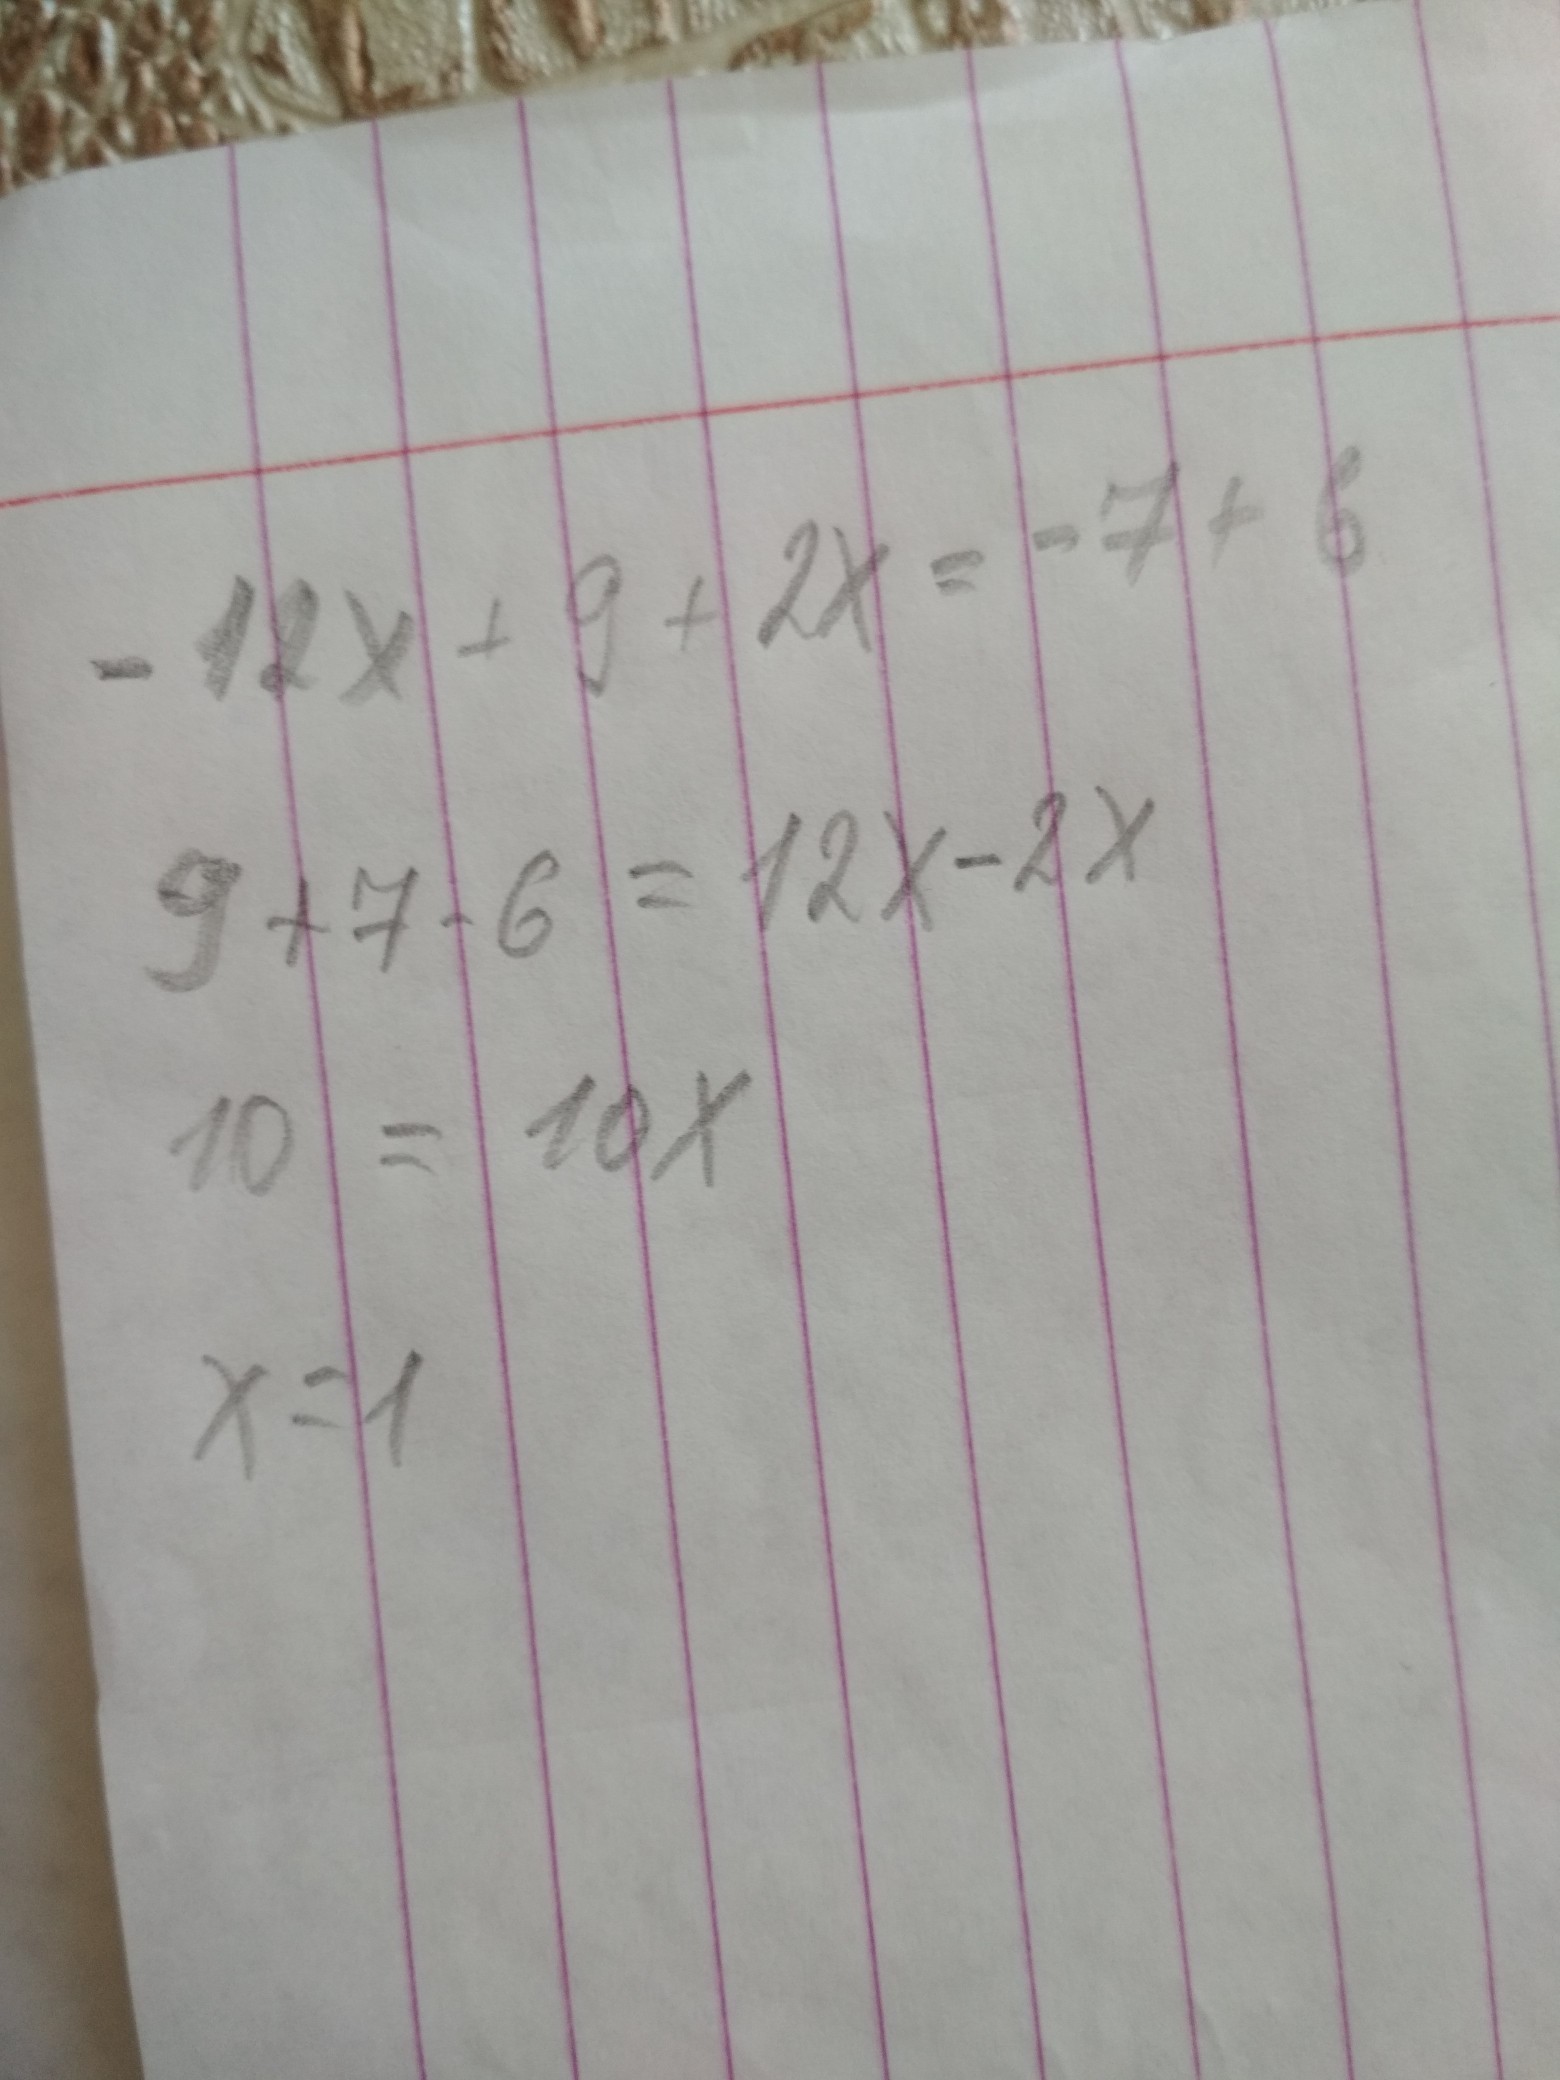 -12x + 9 + 2x = -7 + 6
9 + 7 - 6 = 12x - 2x
10 = 10x
x = 1